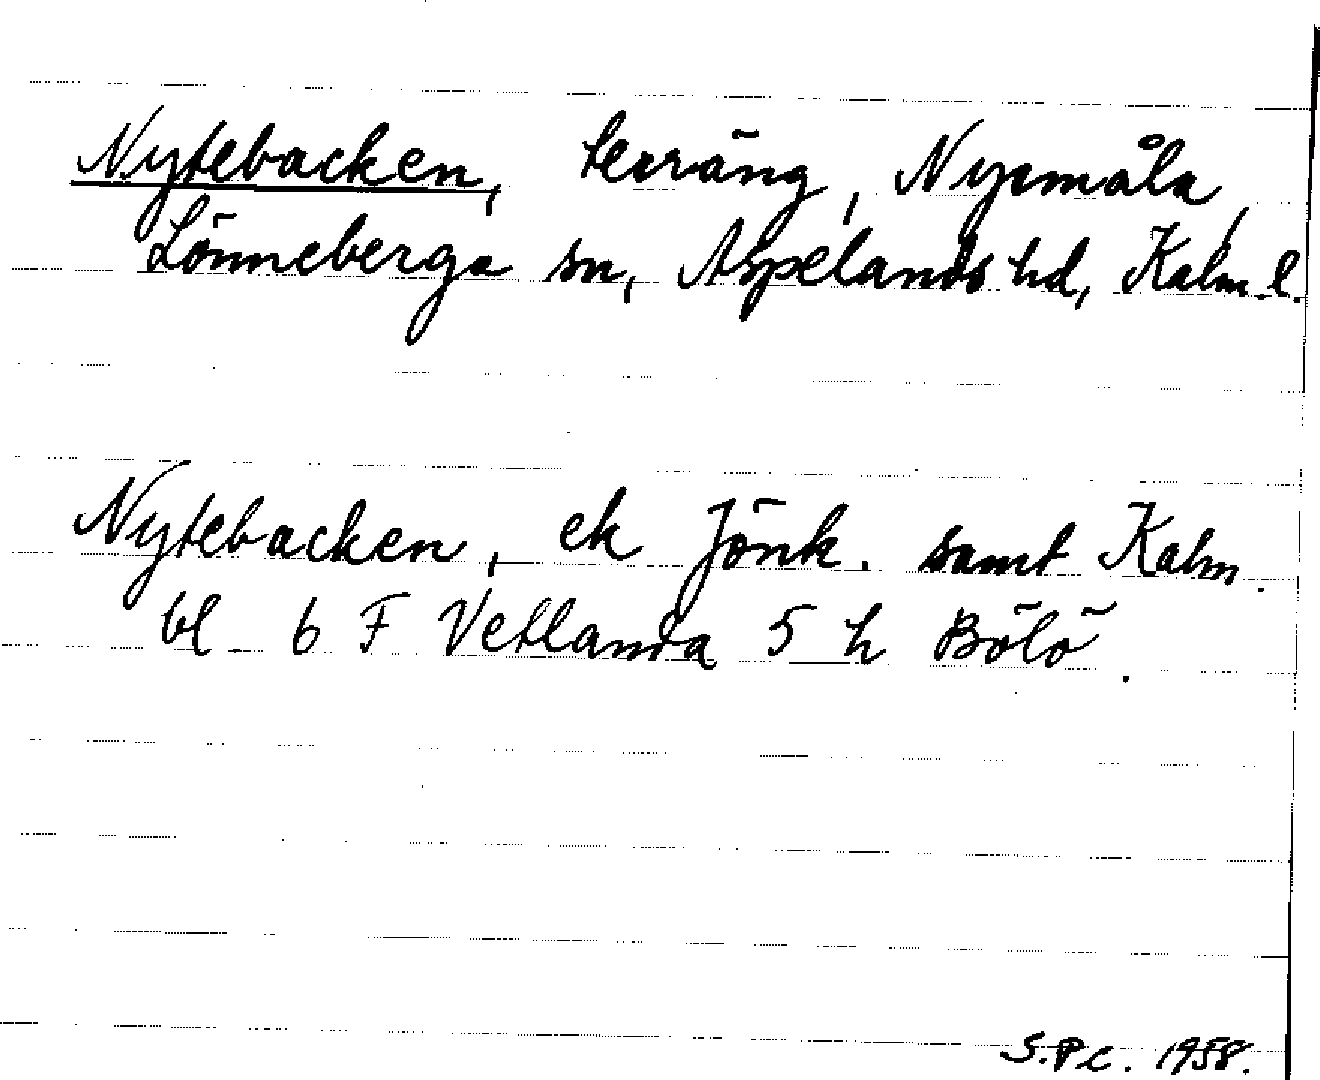 Nytebacken, terräng, Nyemåla,
Lönneberga sn, Aspelands hd, Kalm. l.
Nytebacken, ek Jönk. samt Kalm.
bl 6 F Vetlanda 5 h Bölö.
S.P.C. 1958.